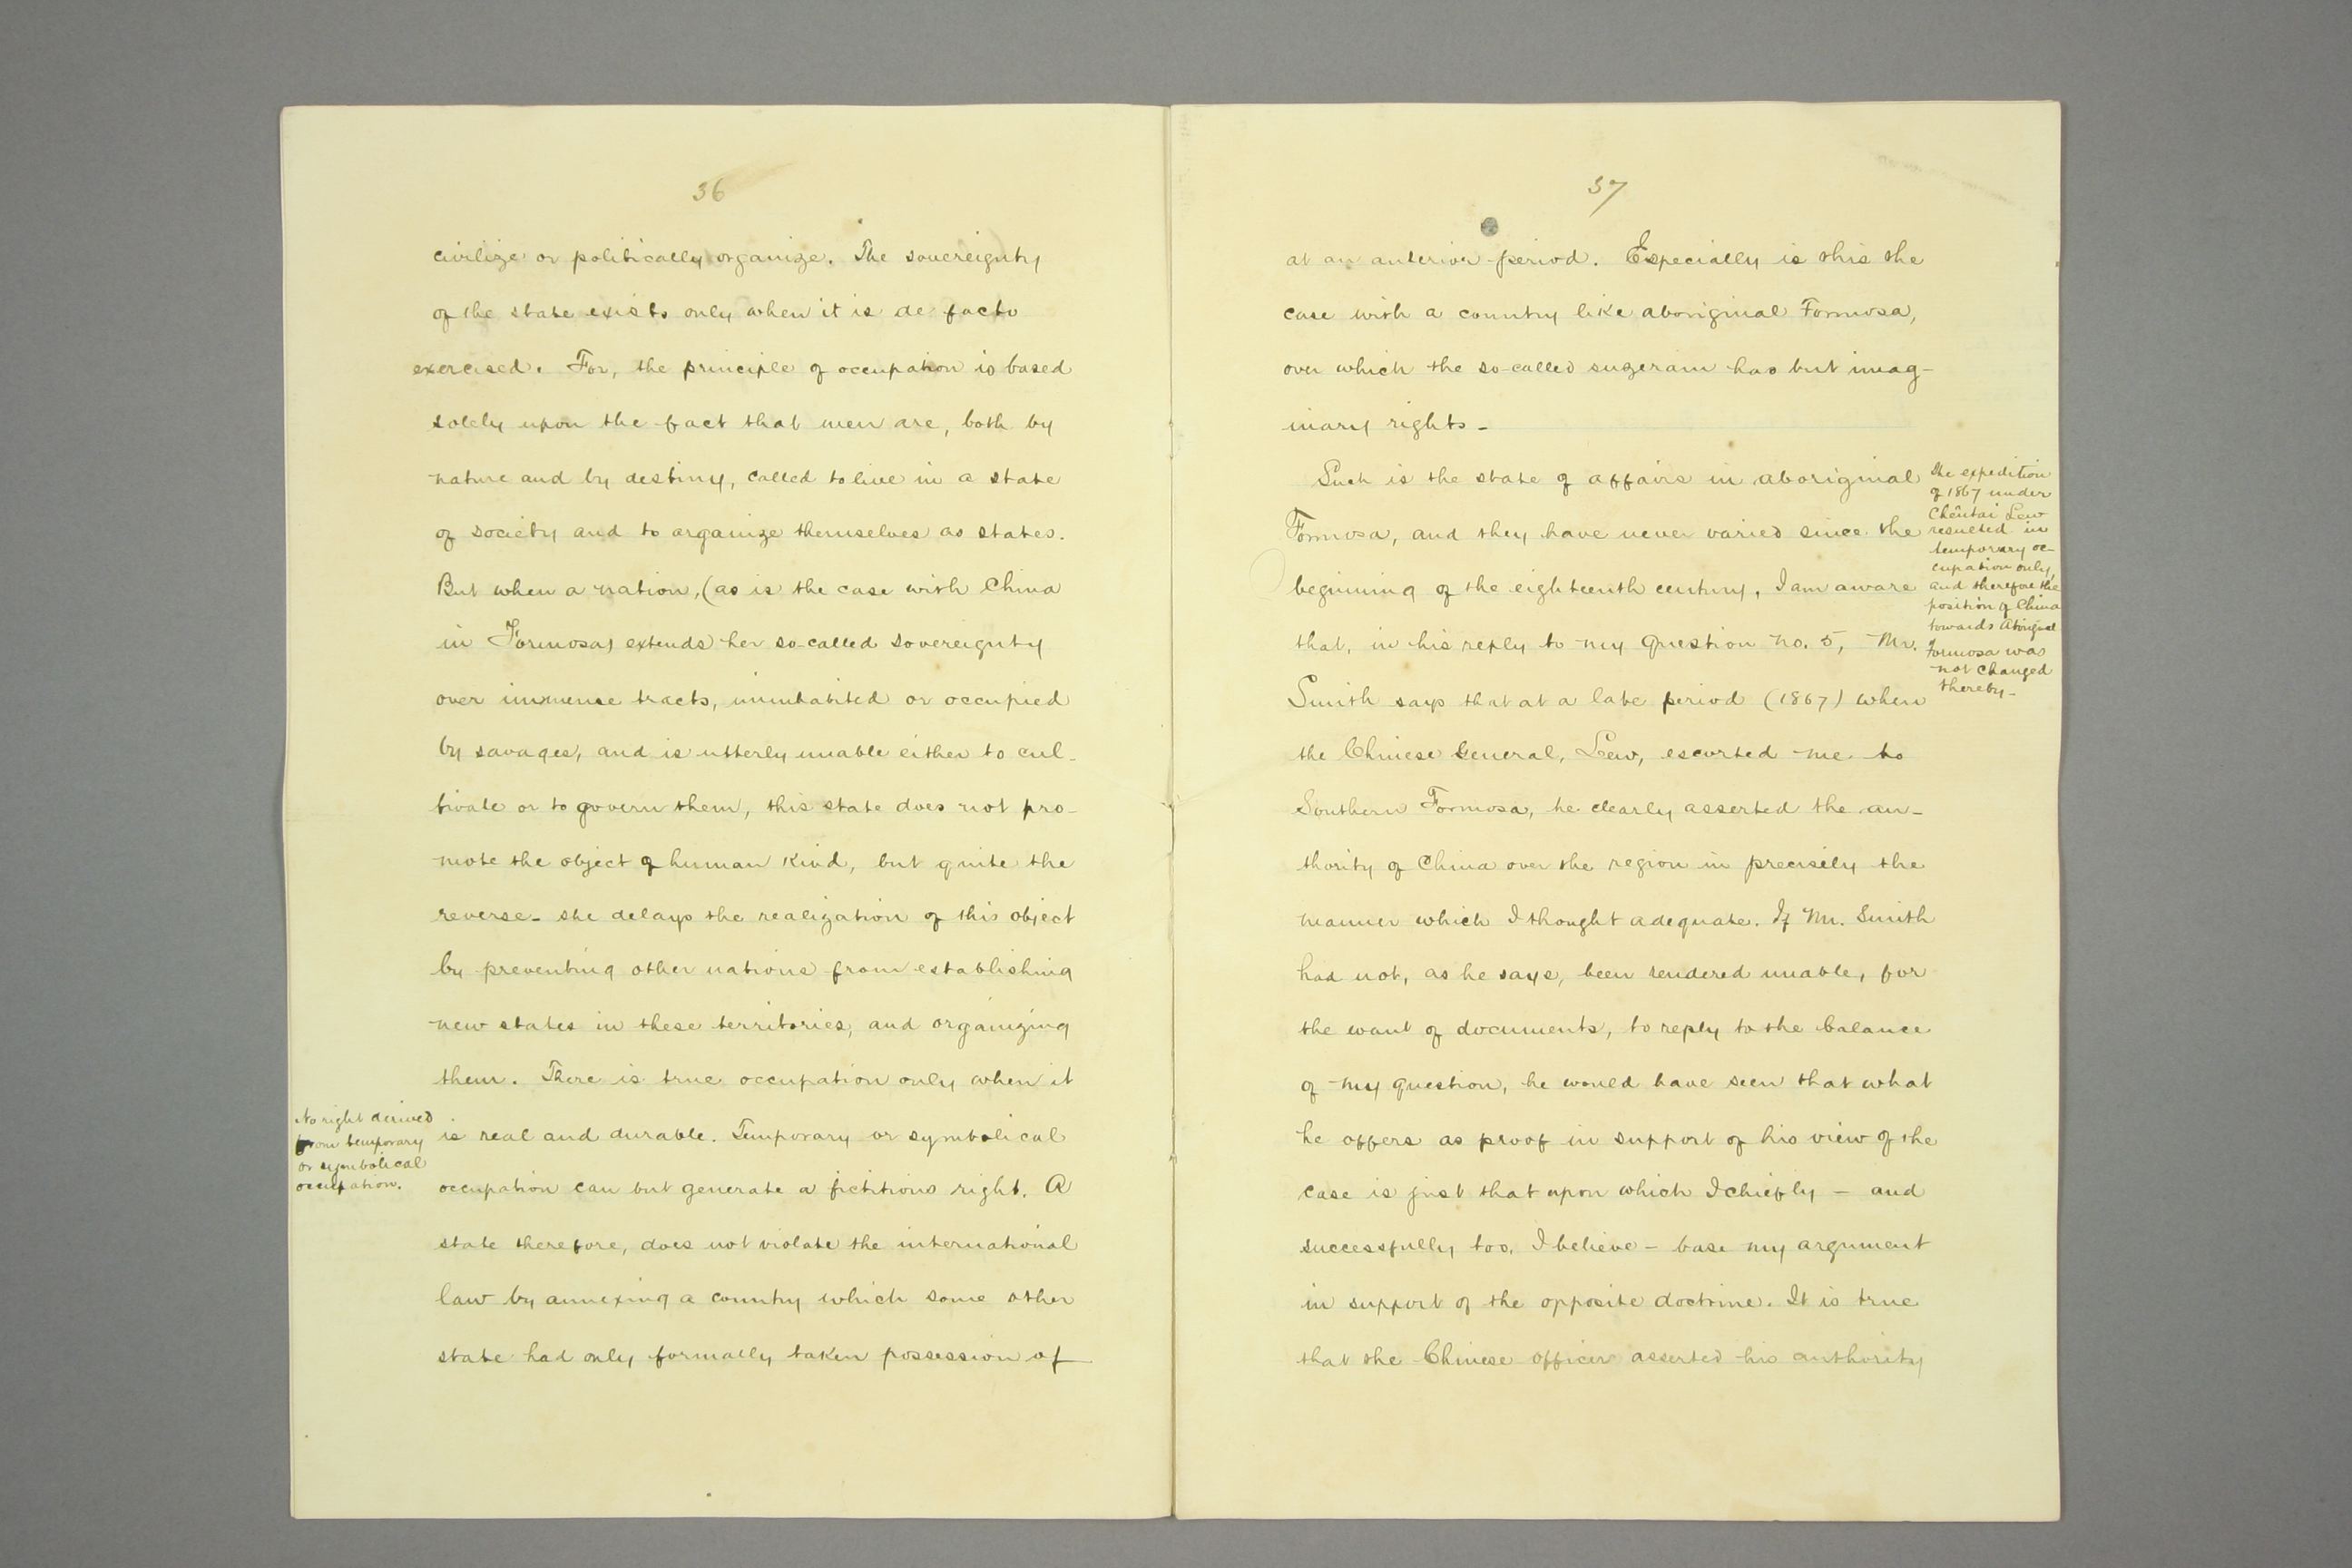 36
civilize or politically organize. The sovereignty
of the state exists only when it is de facto
exercised. For, the principle of occupation is based
solely upon the fact that men are, both by
nature and by destiny, called to live in a state
of society and to organize themselves as states.
But when a nation, (as is the case with China
in Formosa) extends her so-called sovereignty
over immense tracts, uninhabited or occupied
by savages, and is utterly unable either to cul-
tivate or to govern them, this state does not pro-
mote the object of human kind, but quite the
reverse - she delays the realization of this object
by preventing other nations from establishing
new states in these territories, and organizing
them. There is true occupation only when it
is real and durable. Temporary or symbolical
occupation can but generate a fictitious right. A
state therefore, does not violate the international
law by annexing a country which some other
state had only formally taken possession of
No right derived
from temporary
or symbolical
occupation.
37
at an anterior period. Especially is this the
case with a country like aboriginal Formosa,
over which the so-called suzerain has but imag-
inary rights -
Such is the state of affairs in aboriginal
Formosa, and they have never varied since the
beginning of the eighteenth century, I am aware
that, in his reply to my question no. 5, Mr.
Smith says that at a late period (1867) when
the Chinese General, Lew, escorted me to
Southern Formosa, he clearly asserted the au-
thority of China over the region in precisely the
manner which I thought adequate. If Mr. Smith
had not, as he says, been rendered unable, for
the want of documents, to reply to the balance
of my question, he would have seen that what
he offers as proof in support of his view of the
case is just that upon which I chiefly - and
successfully too, I believe - base my argument
in support of the opposite doctrine. It is true
that the Chinese officer asserted his authority
The expedition
of 1867 under
Chêntai Lew
resulted in
temporary oc-
cupation only,
and therefore the
position of China
towards Aboriginal
Formosa was
not changed
thereby -